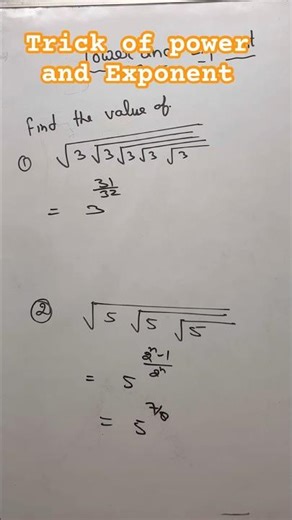 Trick of power
and Exponent
Power and
Find the value of
① √3√3√3√3√3
= 3^(31/32)
② √5√5√5
= 5^((2^n-1)/2^n)
= 5^(7/8)